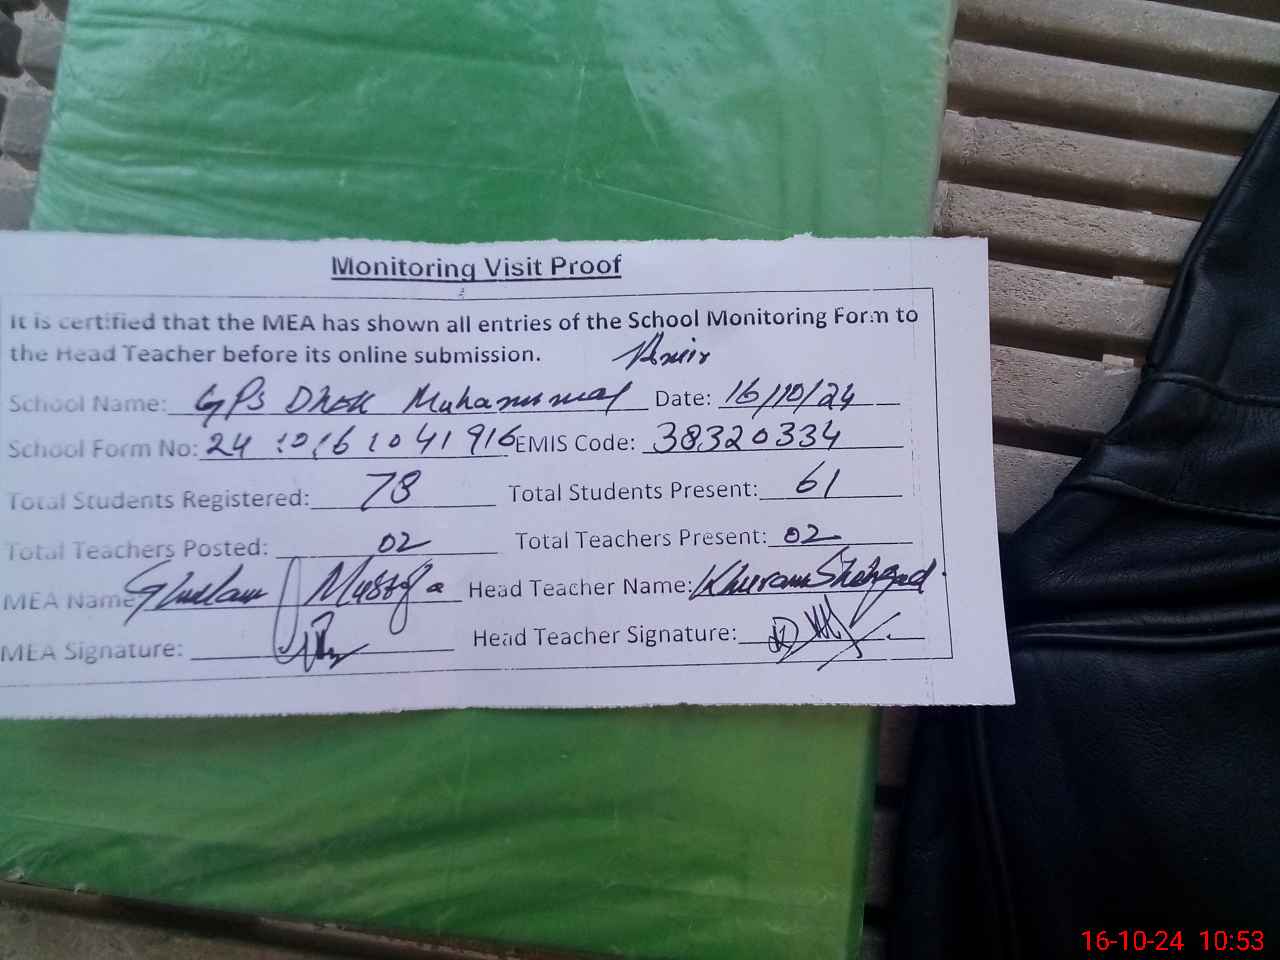 Monitoring Visit Proof
It is certified that the MEA has shown all entries of the School Monitoring Form to
the Head Teacher before its online submission. Amir
School Name: GPS Dhok Muhammad Date: 16/10/24
School Form No: 24 10161041916 EMIS Code: 38320334
Total Students Registered: 78 Total Students Present: 61
Total Teachers Posted: 02 Total Teachers Present: 02
MEA Name Ghulam Mustafa Head Teacher Name: Khuram Shehzad
MEA Signature: Head Teacher Signature:
16-10-24 10:53